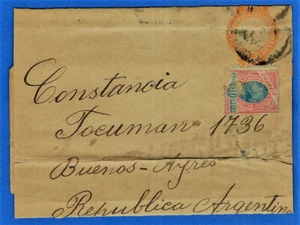 Constancia
Tocuman 1736
Buenos-Ayres
Republica Argentin